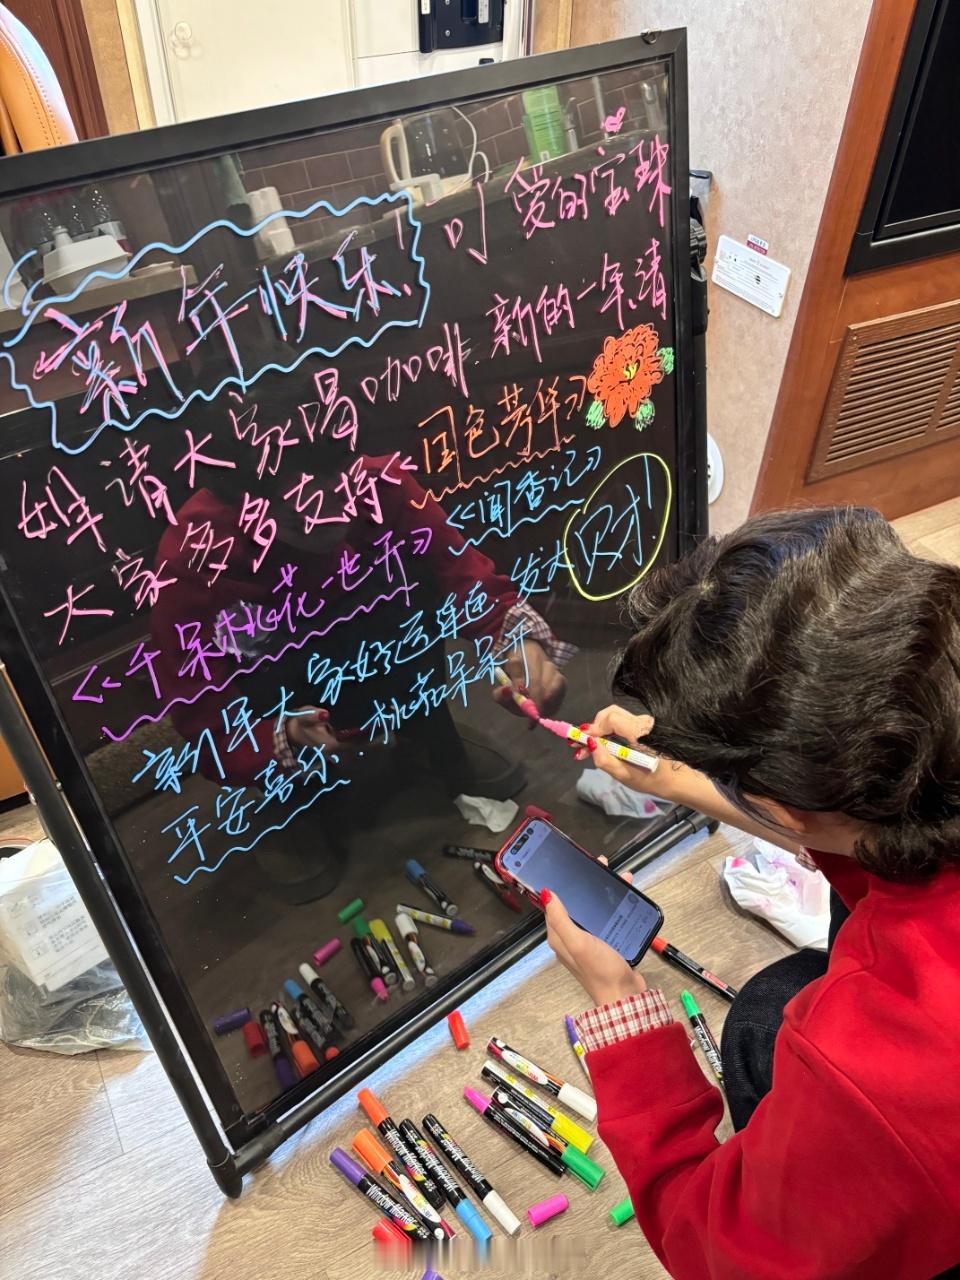 新年快乐! 可爱的宝珠
姐请大家喝咖啡. 新的一年,请
大家多多支持《国色芳华》
《千朵桃花一世开》《闻香记》
新年大家好运连连. 发大财!
平安喜乐. 桃花朵朵开
Window Marker
Window Marker
Window Marker
Window Marker
Window Marker